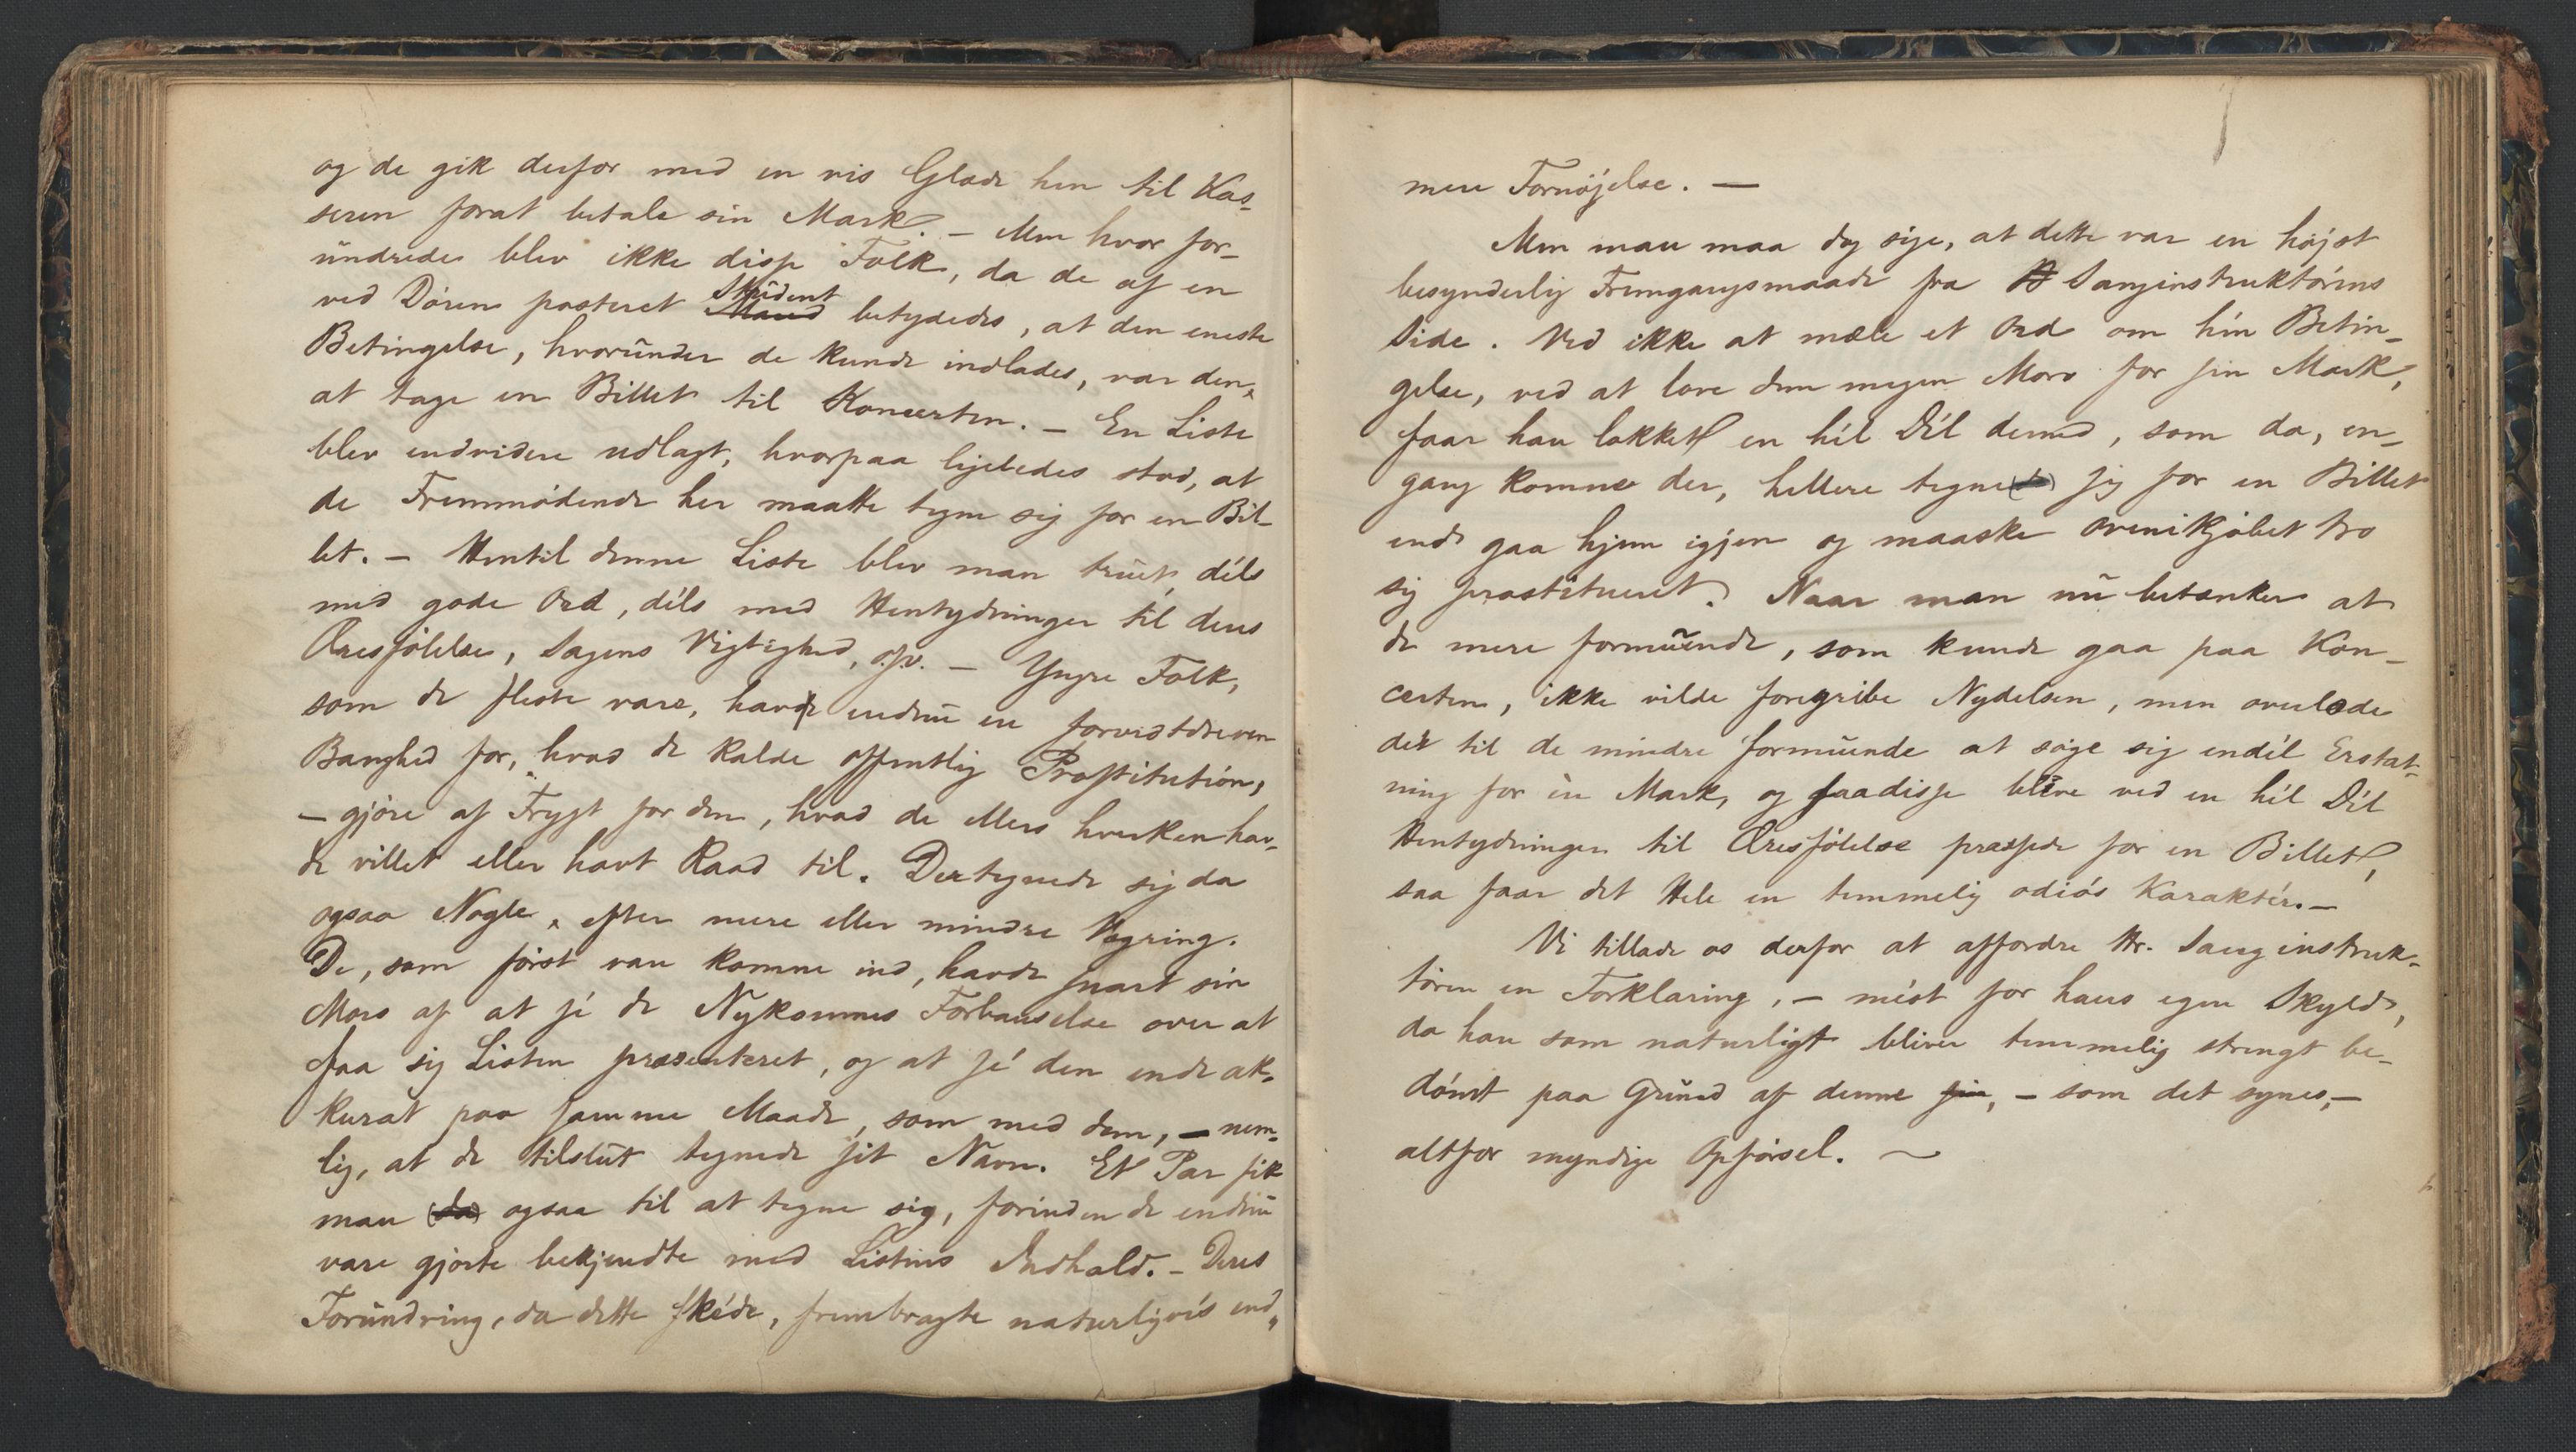 og de gik derfor med en vis Glæde hen til Kas-
seren forat betale sin Mark. – Men hvor for-
undrede blev ikke disse Folk, da de af en
ved Døren posteret Student betydedes, at den eneste
Betingelse, hvorunder de kunde indlades, var den,
at tage en Billet til Koncerten. – En Liste
blev endvidere udlagt, hvorpaa ligeledes stod, at
de Fremmødende her maatte tegne sig for en Bil-
let. – Hentil denne Liste blev man truet, déls
med gode Ord, déls med Hentydninger til deres
Æresfølelse, Sagens Vigtighed, osv. – Yngre Folk,
som de fleste vare, havde endnu en
Banghed for, hvad de kalde offentlig Prostitution,
– gjøre af Frygt for den, hvad de ellers hverken hav-
de villet eller havt Raad til. Der tegnede sig da
ogsaa Nogle, efter mere eller mindre Vægring.
De, som først var komne ind, havde snart sin
Moro af at sé de Nykomnes Forbauselse over at
faa sig Listen præsenteret, og at sé den ende ak-
kurat paa samme Maade, som med dem, – nem-
lig, at de tilslut tegnede sit Navn. Et Par fik
man (da) ogsaa til at tegne sig, forinden de endnu
vare gjorte bekjendte med Listens Indhold. – Deres
Forundring, da dette skéde, frembragte naturligvis end-
mere Fornøjelse. –
Men man maa dog sige, at dette var en højst
besynderlig Fremgangsmaade fra Sanginstruktørens
Side. Ved ikke at mæle et Ord om hin Betin-
gelse, ved at love dem megen Moro for sin Mark,
faar han lokket en hél Dél derned, som da, en-
gang komne der, hellere tegne sig for en Billet
end gaa hjem igjen og maaske ovenikjøbet tro
sig prostitueret. Naar man nu betænker at
de mere formuende, som kunde gaa paa Kon-
certen, ikke vilde foregribe Nydelsen, men overlode
det til de mindre formuende at søge sig endél Erstat-
ning for én Mark, og saa disse blive ved en hél Dél
Hentydninger til Æresfølelse pressede for en Billet,
saa faar det Hele en temmelig odiøs Karaktér. –
Vi tillade os derfor at affordre Hr. Sanginstruk-
tøren en Forklaring, – mést for hans egen Skyld,
da han som naturligt bliver temmelig strengt be-
dømt paa Grund af denne sin, – som det synes, –
altfor myndige Opførsel. ~